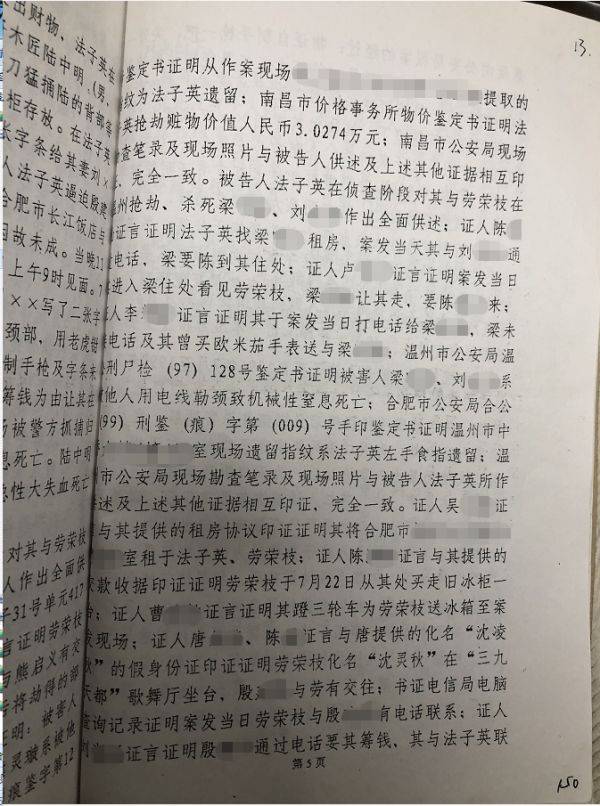 出财物、法子英在
木匠陆中明.(男、
刀猛捅陆的背部等
柜存放。在法子英
长字条给其妻刘×
人法子英逼迫殷建
合肥市长江饭店与
因故未成。当晚11
上午9时见面。7
××写了二张字
颈部，用老虎钳
制手枪及字条未
筹钱为由让其在
场被警方抓捕归
息死亡。陆中明
急性大失血死亡
对其与劳荣枝
人作出全面供
子31号单元417
言证明劳荣枝
与熊启义有交
将劫得的部
证明：被害人
灵璇系被他
痕鉴字第12
13.
鉴定书证明从作案现场 提取的
纹为法子英遗留；南昌市价格事务所物价鉴定书证明法
英抢劫赃物价值人民币3.0274万元；南昌市公安局现场
查笔录及现场照片与被告人供述及上述其他证据相互印
，完全一致。被告人法子英在侦查阶段对其与劳荣枝在
州抢劫、杀死梁 、刘 作出全面供述；证人陈
证言证明法子英找梁 租房，案发当天其与刘 通
电话，梁要陈到其住处；证人卢 证言证明案发当日
进入梁住处看见劳荣枝，梁 让其走，要陈 来；
人李 证言证明其于案发当日打电话给梁 ，梁未
电话及其曾买欧米茄手表送与梁 ；温州市公安局温
公刑尸检（97）128号鉴定书证明被害人梁 、刘 系
他人用电线勒颈致机械性窒息死亡；合肥市公安局合公
（99）刑鉴（痕）字第（009）号手印鉴定书证明温州市中
室现场遗留指纹系法子英左手食指遗留；温
市公安局现场勘查笔录及现场照片与被告人法子英所作
述及上述其他证据相互印证，完全一致。证人吴 证
与其提供的租房协议印证证明其将合肥市
室租于法子英、劳荣枝；证人陈 证言与其提供的
款收据印证证明劳荣枝于7月22日从其处买走旧冰柜一
；证人曹 证言证明其蹬三轮车为劳荣枝送冰箱至案
发现场；证人唐 、陈 证言与唐提供的化名“沈凌
秋”的假身份证印证证明劳荣枝化名“沈灵秋”在“三九
天都”歌舞厅坐台，殷 与劳有交往；书证电信局电脑
查询记录证明案发当日劳荣枝与殷 有电话联系；证人
刘 证言证明殷 通过电话要其筹钱，其与法子英联
第5页
150